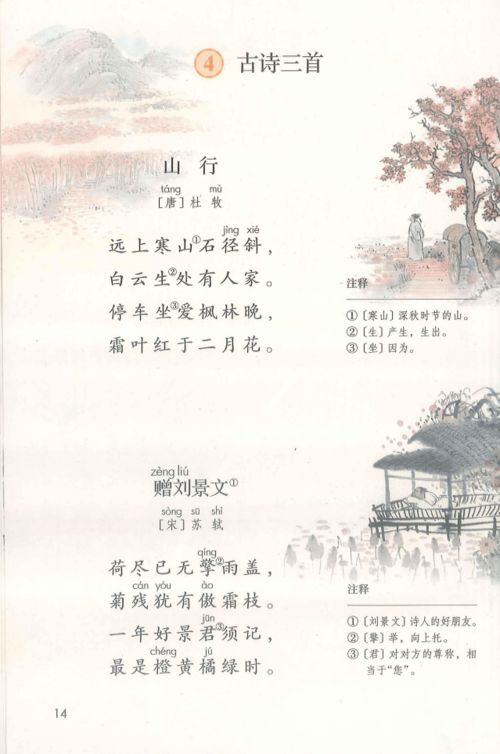 4 古诗三首
山 行
táng mù
[唐] 杜 牧
jìng xié
远上寒山①石径斜，
白云生②处有人家。
停车坐③爱枫林晚，
霜叶红于二月花。
注释
① 〔寒山〕深秋时节的山。
② 〔生〕产生，生出。
③ 〔坐〕因为。
zèng liú
赠刘景文①
sòng sū shì
[宋] 苏 轼
qíng
荷尽已无擎②雨盖，
cán yóu ào
菊残犹有傲霜枝。
jūn
一年好景君③须记，
chéng jú
最是橙黄橘绿时。
注释
① 〔刘景文〕诗人的好朋友。
② 〔擎〕举，向上托。
③ 〔君〕对对方的尊称，相
当于“您”。
14